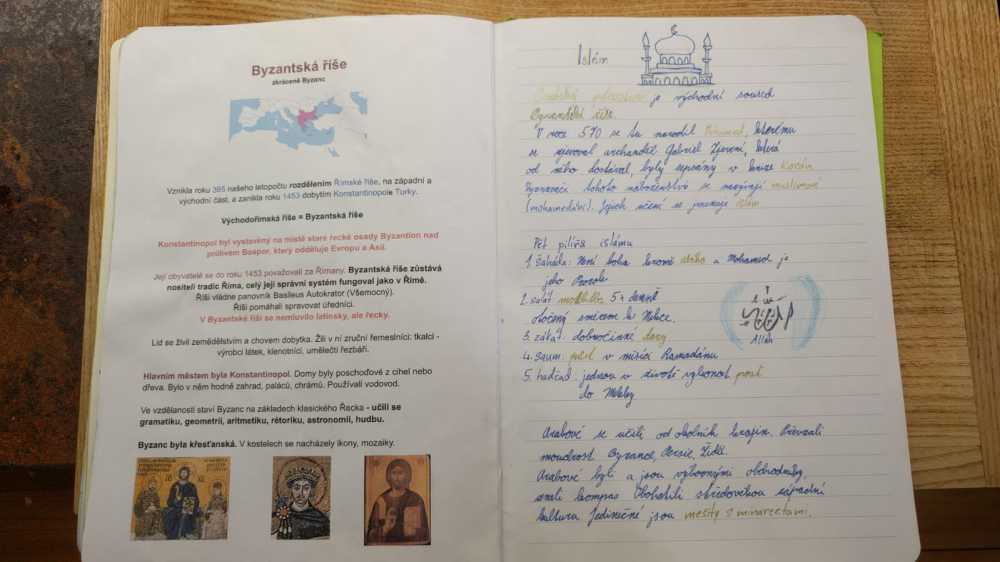 Byzantská říše
zkráceně Byzanc
Vznikla roku 395 našeho letopočtu rozdělením Římské říše, na západní a
východní část, a zanikla roku 1453 dobytím Konstantinopole Turky.
Východořímská říše = Byzantská říše
Konstantinopol byl vystavěný na místě staré řecké osady Byzantion nad
průlivem Bospor, který odděluje Evropu a Asii.
Její obyvatelé se do roku 1453 považovali za Římany. Byzantská říše zůstává
nositeli tradic Říma, celý její správní systém fungoval jako v Římě.
Říši vládne panovník Basileus Autokrator (Všemocný).
Říši pomáhali spravovat úředníci.
V Byzantské říši se nemluvilo latinsky, ale řecky.
Lid se živil zemědělstvím a chovem dobytka. Žili v ní zruční řemeslníci: tkalci -
výrobci látek, klenotníci, umělečtí řezbáři.
Hlavním městem byla Konstantinopol. Domy byly poschoďové z cihel nebo
dřeva. Bylo v něm hodně zahrad, paláců, chrámů. Používali vodovod.
Ve vzdělanosti staví Byzanc na základech klasického Řecka - učili se
gramatiku, geometrii, aritmetiku, rétoriku, astronomii, hudbu.
Byzanc byla křesťanská. V kostelech se nacházely ikony, mozaiky.
Islám
je východní soused
Byzantské říše.
V roce 570 se tu narodil Mohamed, kterému
se zjevoval archanděl Gabriel. Zjevení, která
od něho dostával, byly sepsány v knize Korán.
Vyznavači tohoto náboženství se nazývají muslimové
(mohamedáni). Jejich učení se jmenuje islám
Pět pilířů islámu
1. Šaháda: Není boha kromě Alláha a Mohamed je
jeho Prorok
2. salát modlitba 5x denně
otočený směrem k Mekce.
3. zakát dobročinné dary
4. Saum: půst v měsíci Ramadánu
5. hadždž: jednou v životě vykonat pouť
do Mekky
الله
Alláh
Arabové se učili od okolních krajin. Převzali
moudrost Byzance, Persie, Židů.
Arabové byli a jsou výbornými obchodníky,
znali kompas. Obohatili středověkou západní
kulturu. Jedinečné jsou mešity s minarety.